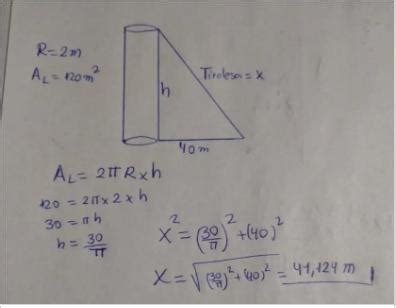 R=2m
A_L=120m²
Tirolesa = x
h
40m
A_L = 2πR×h
120 = 2π×2×h
30 = πh
h = 30/π
X² = (30/π)² + (40)²
X = √((30/π)² + (40)²) = 41,124 m